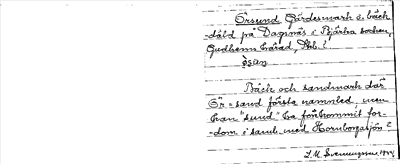 Örsund Gärdesmark o. bäck
-dåld på Dagsnäs i Bjärka socken,
Gudhems härad, Skb.?
ò̤san
Bäck och sandmark där
Ör-sand första namnled, men
kan "sund" ha förekommit for-
dom i samb. med Hornborgasjön?
L.M. Svenungsson 1944